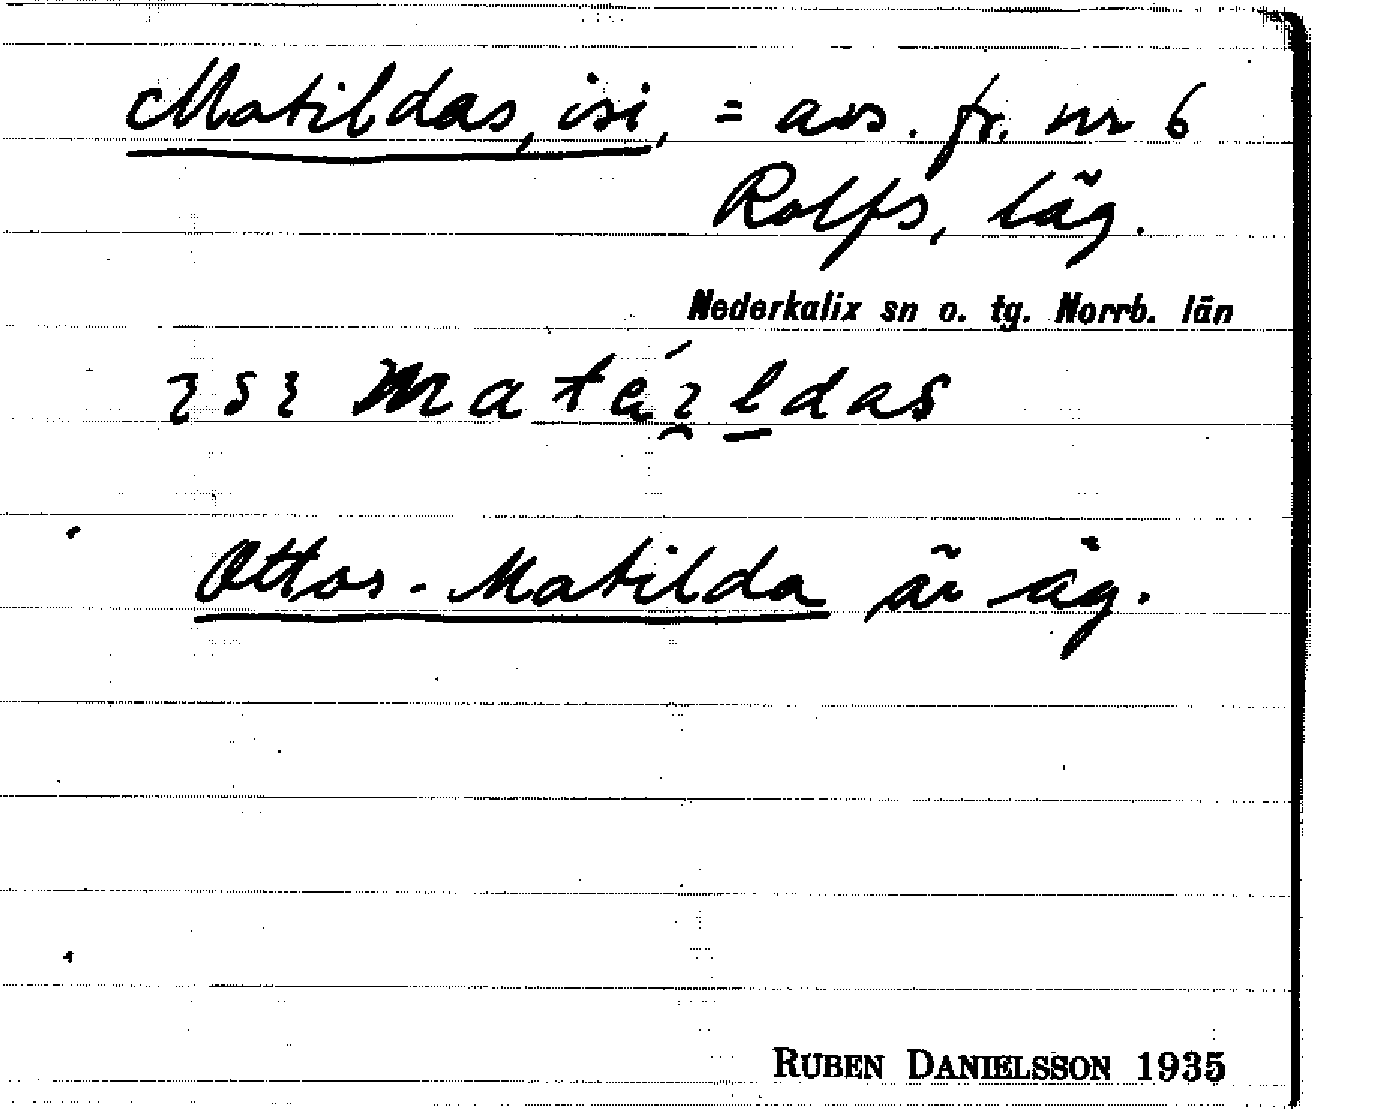 Matildas, isi, = avs. fr. nr 6
Rolfs, läg.
Nederkalix sn o. tg. Norrb. län
Matéıldas
Ottos-Matilda är äg.
RUBEN DANIELSSON 1935